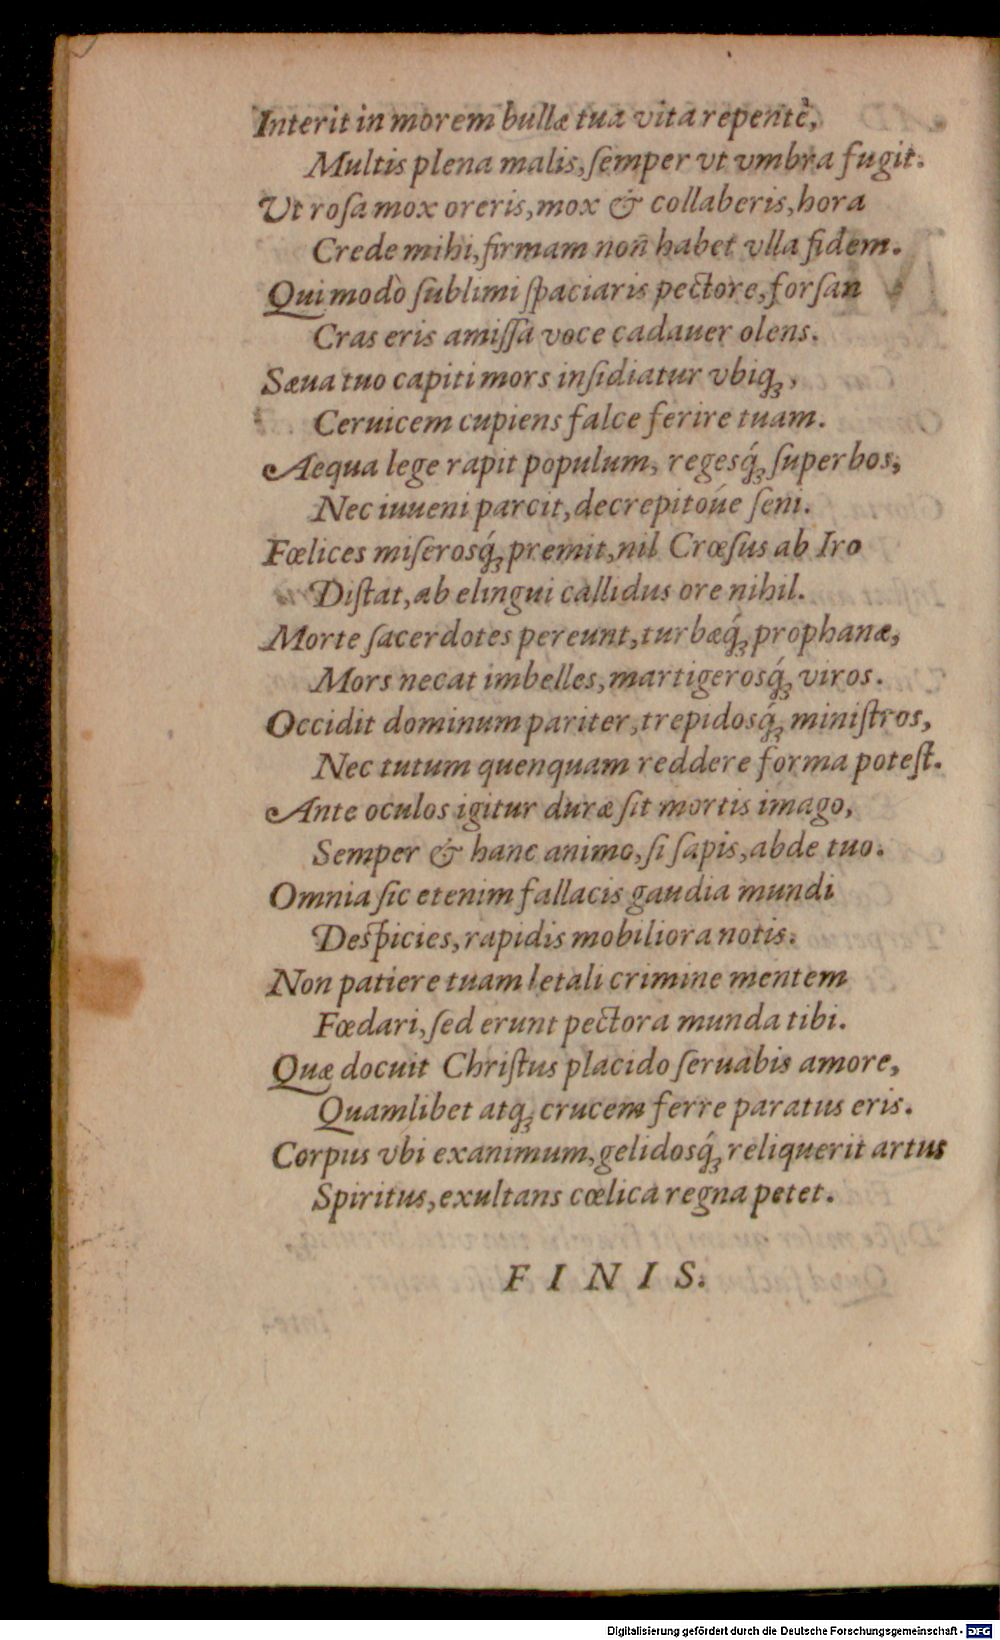 Interit in morem bullæ tua vita repentè,
Multis plena malis, ſemper vt vmbra fugit.
Vt roſa mox oreris, mox & collaberis, hora
Crede mihi, firmam non̄ habet vlla fidem.
Qui modò ſublimi ſpaciaris pectore, forſan
Cras eris amiſſa voce cadauer olens.
Sæua tuo capiti mors inſidiatur vbiq́;,
Ceruicem cupiens falce ferire tuam.
Aequa lege rapit populum, regesq́; ſuperbos,
Nec iuueni parcit, decrepitoúe ſeni.
Fœlices miſerosq́; premit, nil Crœſus ab Iro
Diſtat, ab elingui callidus ore nihil.
Morte ſacerdotes pereunt, turbæq́; prophanæ,
Mors necat imbelles, martigerosq́; viros.
Occidit dominum pariter, trepidosq́; miniſtros,
Nec tutum quenquam reddere forma poteſt.
Ante oculos igitur duræ ſit mortis imago,
Semper & hanc animo, ſi ſapis, abde tuo.
Omnia ſic etenim fallacis gaudia mundi
Deſpicies, rapidis mobiliora notis.
Non patiere tuam letali crimine mentem
Fœdari, ſed erunt pectora munda tibi.
Quæ docuit Chriſtus placido ſeruabis amore,
Quamlibet atq; crucem ferre paratus eris.
Corpus vbi exanimum, gelidosq́; reliquerit artus
Spiritus, exultans cœlica regna petet.
F I N I S.
Digitalisierung gefördert durch die Deutsche Forschungsgemeinschaft - DFG